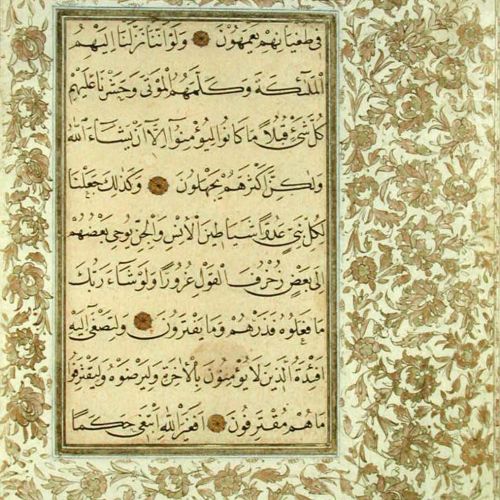 في طغيانهم يعمهون ولو اننا نزلنا اليهم
الملئكة وكلمهم الموتى وحشرنا عليهم
كل شئ قبلا ما كانوا ليؤمنوا الا ان يشاء الله
ولكن اكثرهم يجهلون وكذلك جعلنا
لكل نبي عدوا شياطين الانس والجن يوحي بعضهم
الى بعض زخرف القول غرورا ولو شاء ربك
ما فعلوه فذرهم وما يفترون ولتصغى اليه
افئدة الذين لا يؤمنون بالاخرة وليرضوه وليقترفوا
ما هم مقترفون افغير الله ابتغي حكما